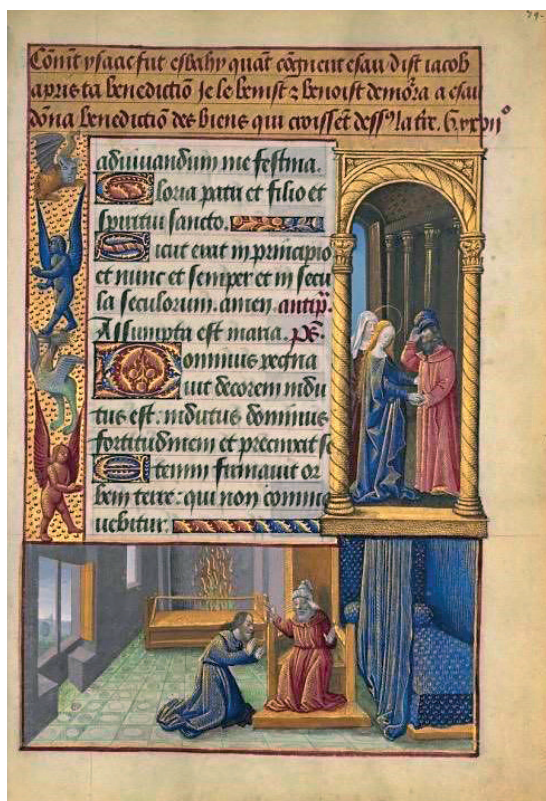 79.
Cōmt ysaac fut esbahy quāt cōgneut esau dist iacob
apris ta benedictiō Je le benist ⁊ benoist demōra a esau
dōna benedictiō des biens qui croissēt dessꝰ la tr̄e. G. xxvijº
adiuuandum me festina.
Gloria patri et filio et
spiritui sancto.
Sicut erat in principio
et nunc et semper et in secu
la seculorum. amen. antiph̄.
Assumpta est maria. pš.
Dominus regna
uit decorem indu
tus est: indutus dominus
fortitudinem et precinxit se
Etenim firmauit or
bem terre: qui non commo
uebitur.